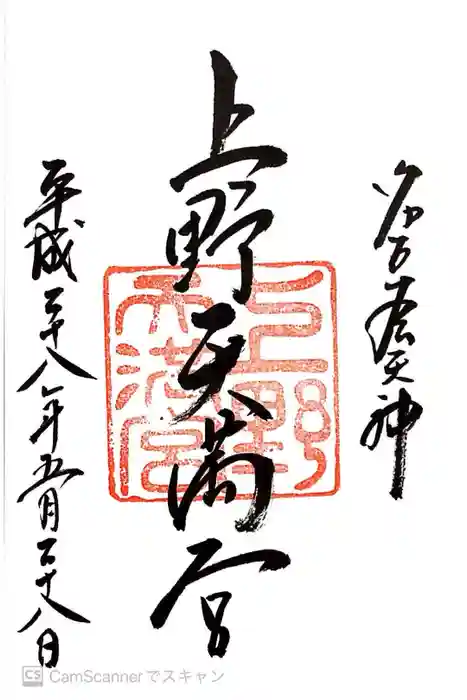 名古屋天神
上野天満宮
上野
天満宮
平成二十八年五月二十八日
CS CamScannerでスキャン